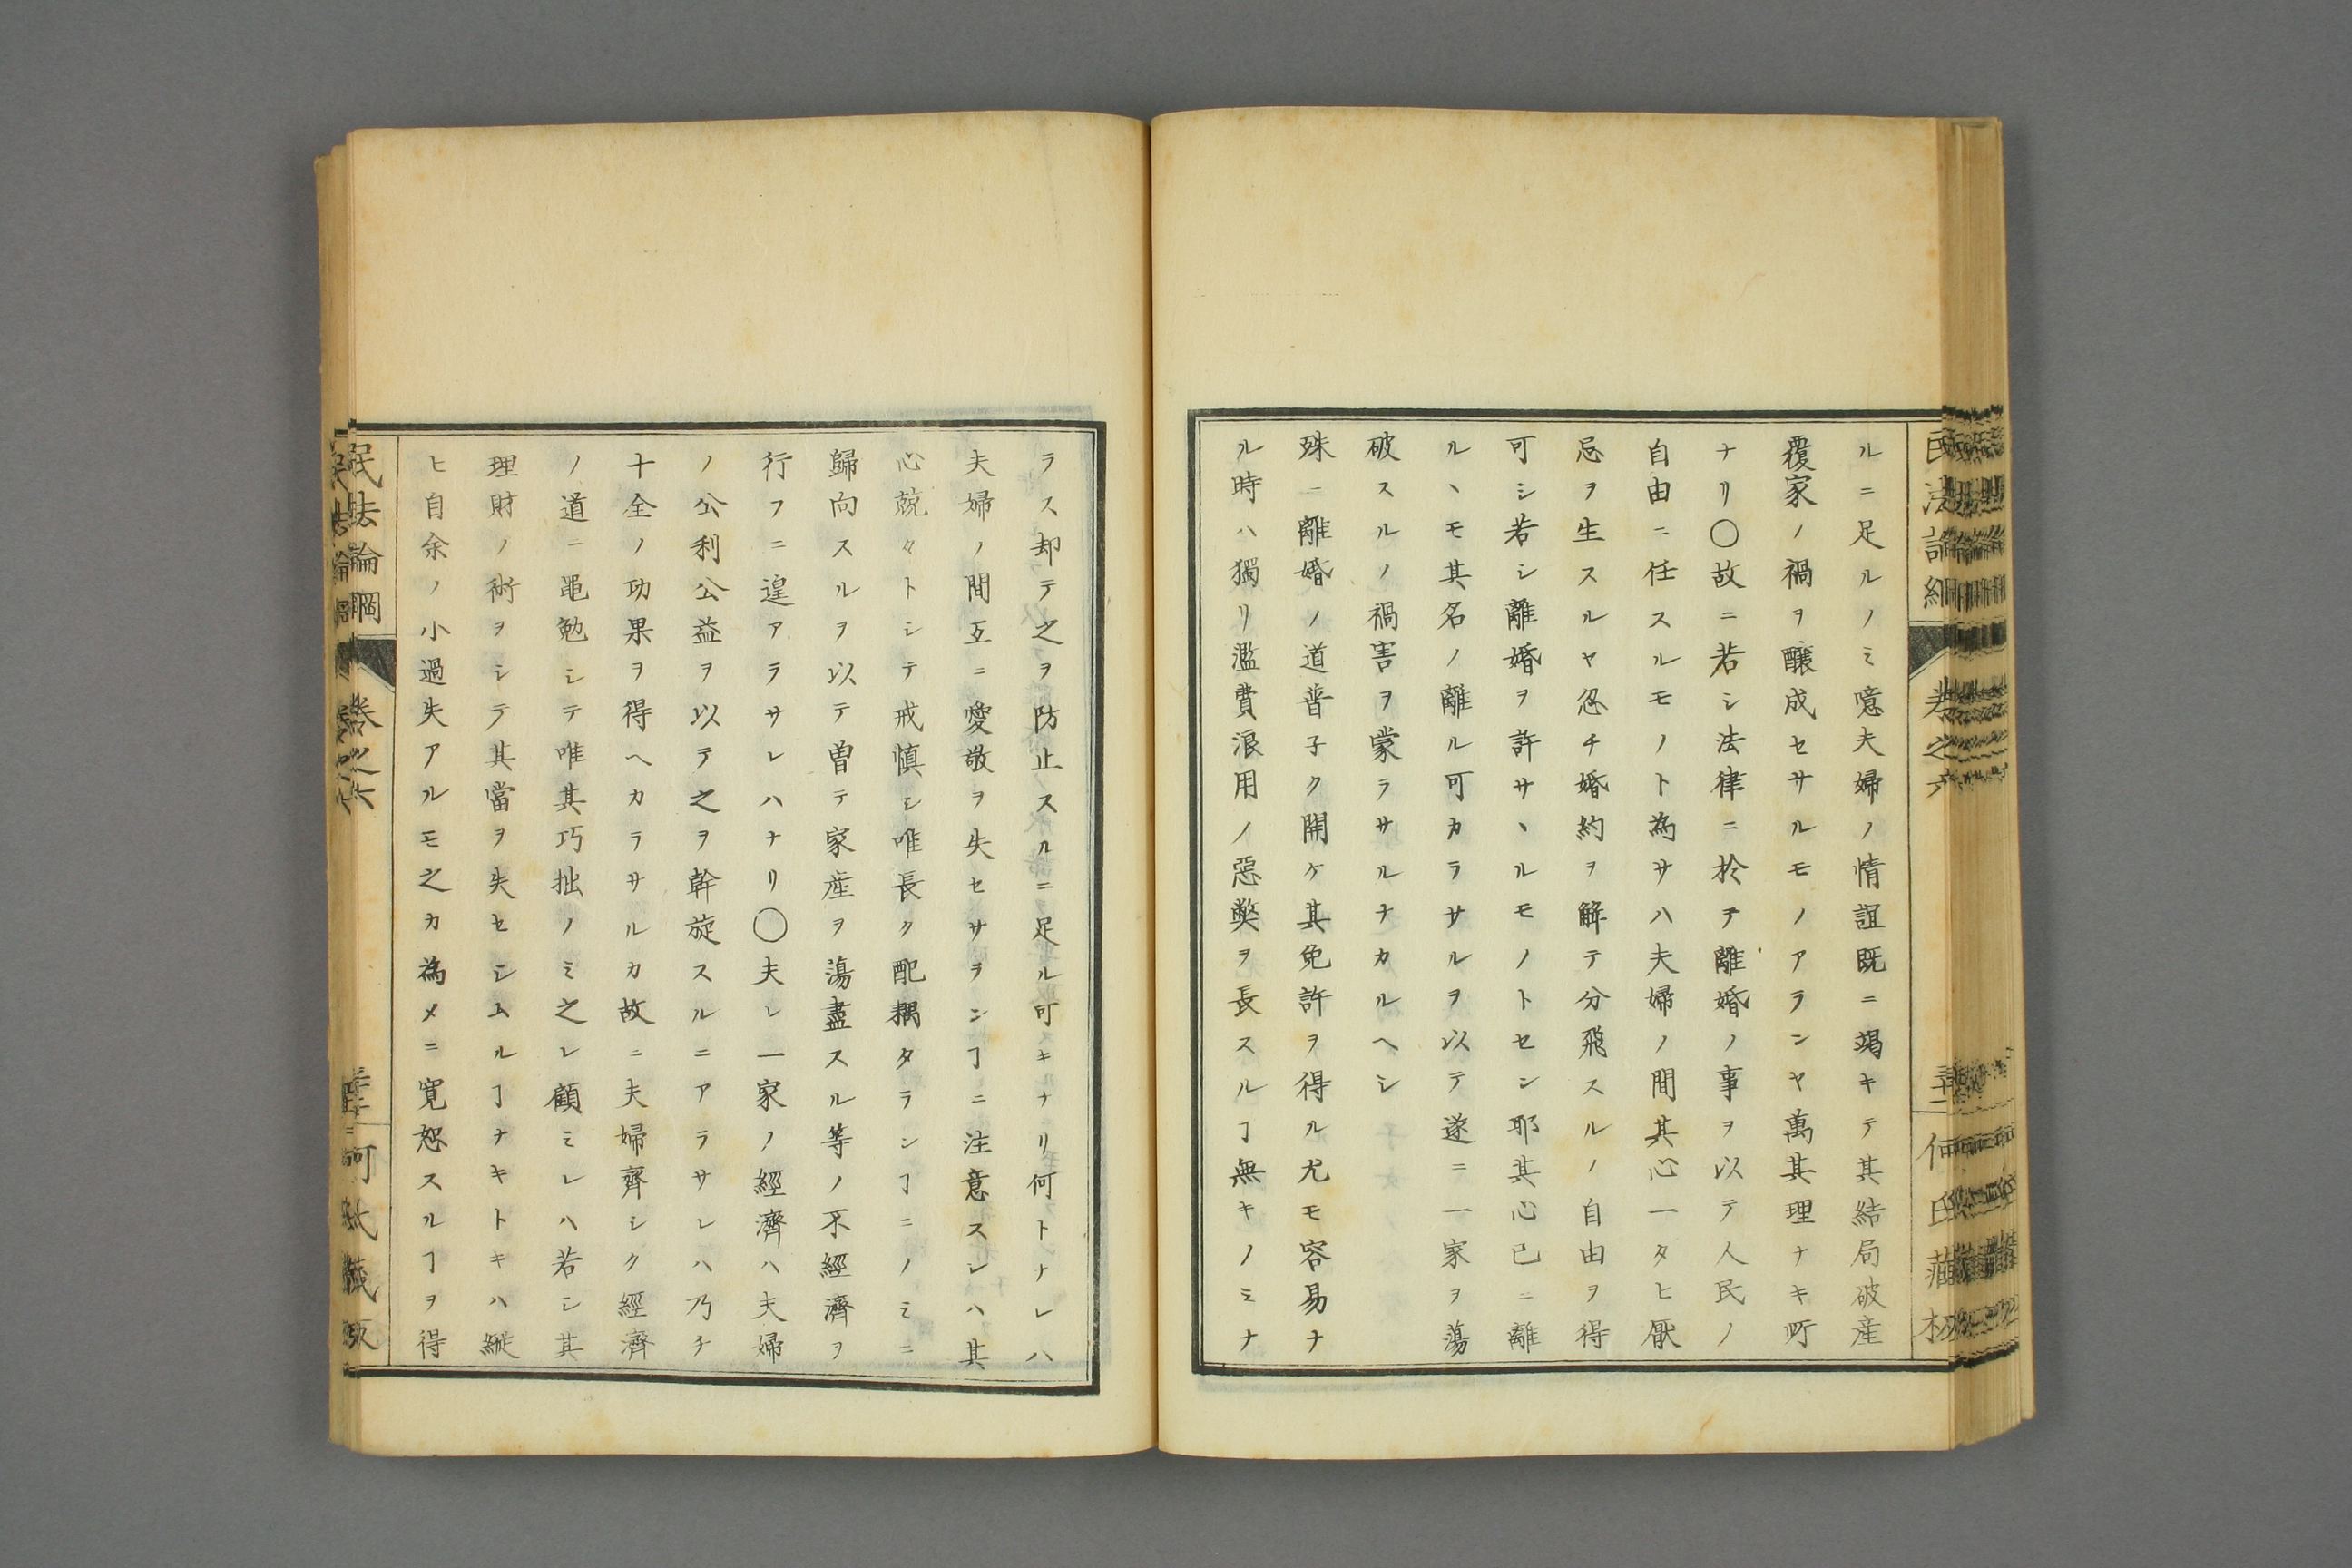 ルニ足ルノミ噫夫婦ノ情誼既ニ竭キテ其結局破産
覆家ノ禍ヲ醸成セサルモノアランヤ萬其理ナキ所
ナリ〇故ニ若シ法律ニ於テ離婚ノ事ヲ以テ人民ノ
自由ニ任スルモノト為サハ夫婦ノ間其心一タヒ厭
忌ヲ生スルヤ忽チ婚約ヲ解テ分飛スルノ自由ヲ得
可シ若シ離婚ヲ許サヽルモノトセン耶其心已ニ離
ルヽモ其名ノ離ル可カラサルヲ以テ遂ニ一家ヲ蕩
破スルノ禍害ヲ蒙ラサルナカルヘシ
殊ニ離婚ノ道普子ク開ケ其免許ヲ得ル尤モ容易ナ
ル時ハ獨リ濫費浪用ノ惡弊ヲ長スルヿ無キノミナ
ラス却テ之ヲ防止スルニ足ル可キナリ何トナレハ
夫婦ノ間互ニ愛敬ヲ失セサランヿニ注意スレハ其
心兢々トシテ戒慎シ唯長ク配耦タランヿニノミニ
歸向スルヲ以テ曽テ家産ヲ蕩盡スル等ノ不經濟ヲ
行フニ遑アラサレハナリ〇夫レ一家ノ經濟ハ夫婦
ノ公利公益ヲ以テ之ヲ幹旋スルニアラサレハ乃チ
十全ノ功果ヲ得ヘカラサルカ故ニ夫婦齊シク經濟
ノ道ニ黽勉シテ唯其巧拙ノミ之レ顧ミレハ若シ其
理財ノ術ヲシテ其當ヲ失セシムルヿナキトキハ縱
ヒ自余ノ小過失アルモ之カ為メニ寛恕スルヿヲ得
民法論綱
卷之六
何氏藏板